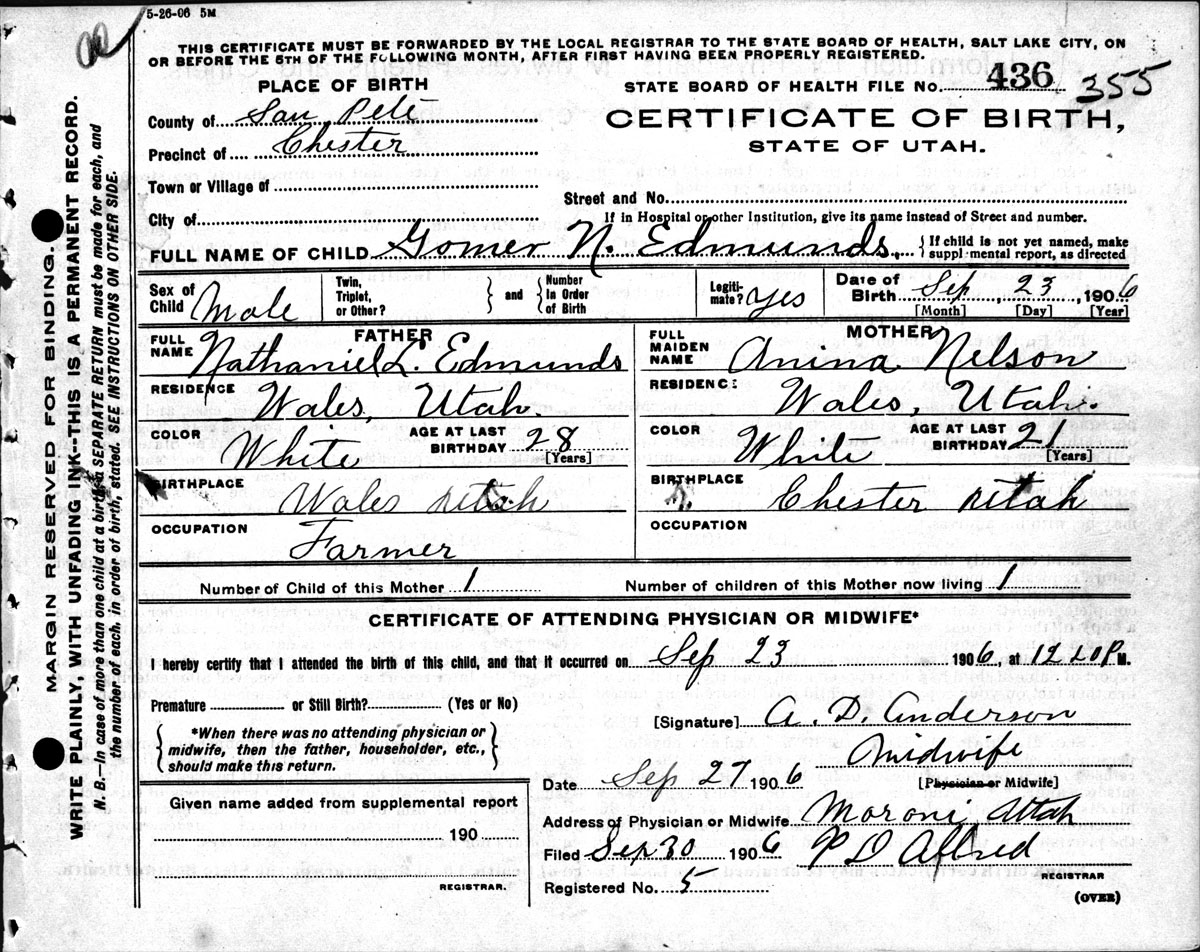 5-26-06 5M
THIS CERTIFICATE MUST BE FORWARDED BY THE LOCAL REGISTRAR TO THE STATE BOARD OF HEALTH, SALT LAKE CITY, ON
OR BEFORE THE 5TH OF THE FOLLOWING MONTH, AFTER FIRST HAVING BEEN PROPERLY REGISTERED.
PLACE OF BIRTH
STATE BOARD OF HEALTH FILE NO. 436 355
County of San Pete
CERTIFICATE OF BIRTH,
Precinct of Chester
STATE OF UTAH.
Town or Village of
Street and No.
City of
If in Hospital or other Institution, give its name instead of Street and number.
FULL NAME OF CHILD Gomer N. Edmunds. {If child is not yet named, make
suppl·mental report, as directed
Sex of Child Male
Twin, Triplet, or Other? } and { Number In Order of Birth
Legiti-mate? yes
Date of Birth Sep, 23, 1906
[Month] [Day] [Year]
FATHER
FULL NAME Nathaniel L. Edmunds
MOTHER
FULL MAIDEN NAME Anina Nelson
RESIDENCE Wales, Utah.
RESIDENCE Wales, Utah.
COLOR White AGE AT LAST BIRTHDAY 28 [Years]
COLOR White AGE AT LAST BIRTHDAY 21 [Years]
BIRTHPLACE Wales Utah
BIRTHPLACE Chester Utah
OCCUPATION Farmer
OCCUPATION
Number of Child of this Mother 1
Number of children of this Mother now living 1
CERTIFICATE OF ATTENDING PHYSICIAN OR MIDWIFE*
I hereby certify that I attended the birth of this child, and that it occurred on Sep 23 1906, at 12 P M.
Premature or Still Birth? (Yes or No)
[Signature] A. D. Anderson
{ *When there was no attending physician or
midwife, then the father, householder, etc.,
should make this return. }
Midwife
[Physician or Midwife]
Date Sep 27 1906
Given name added from supplemental report
Address of Physician or Midwife Moroni Utah
190
Filed Sep 30 1906 P D Allred
REGISTRAR
REGISTRAR.
Registered No. 5
(OVER)
MARGIN RESERVED FOR BINDING.
WRITE PLAINLY, WITH UNFADING INK--THIS IS A PERMANENT RECORD.
N. B.—In case of more than one child at a birth, a SEPARATE RETURN must be made for each, and
the number of each, in order of birth, stated. SEE INSTRUCTIONS ON OTHER SIDE.